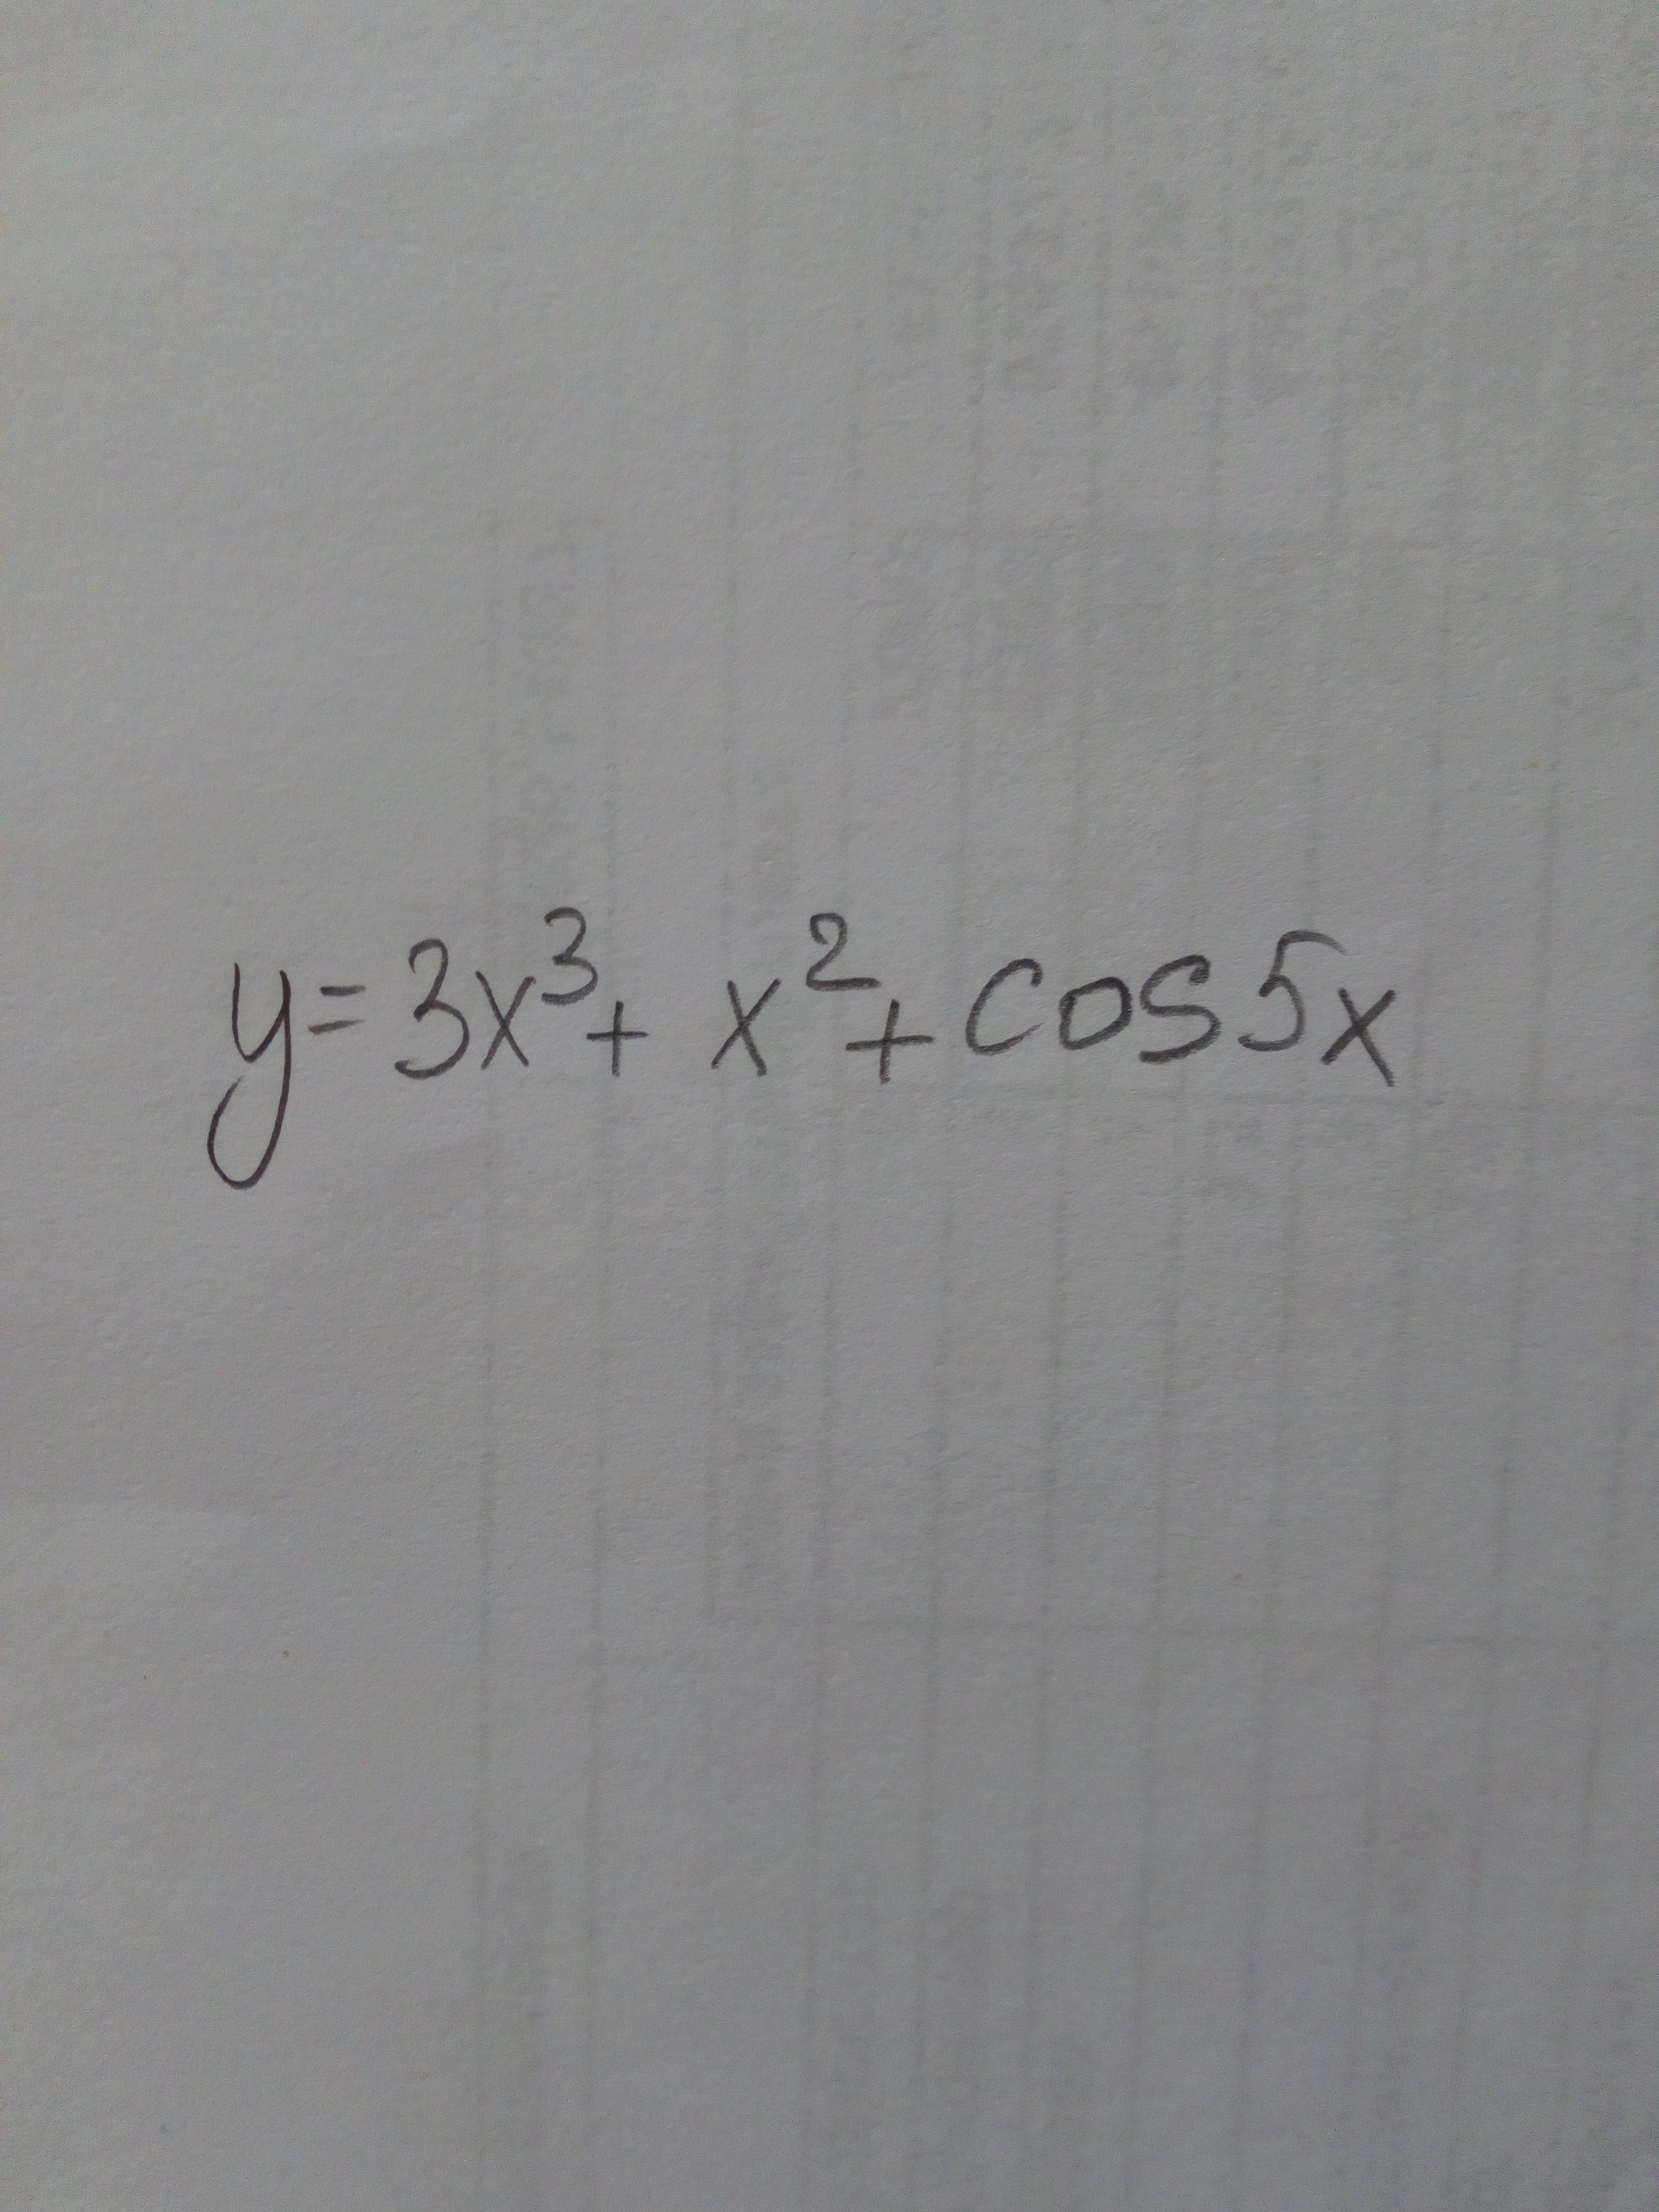 y = 3x³ + x² + cos 5x